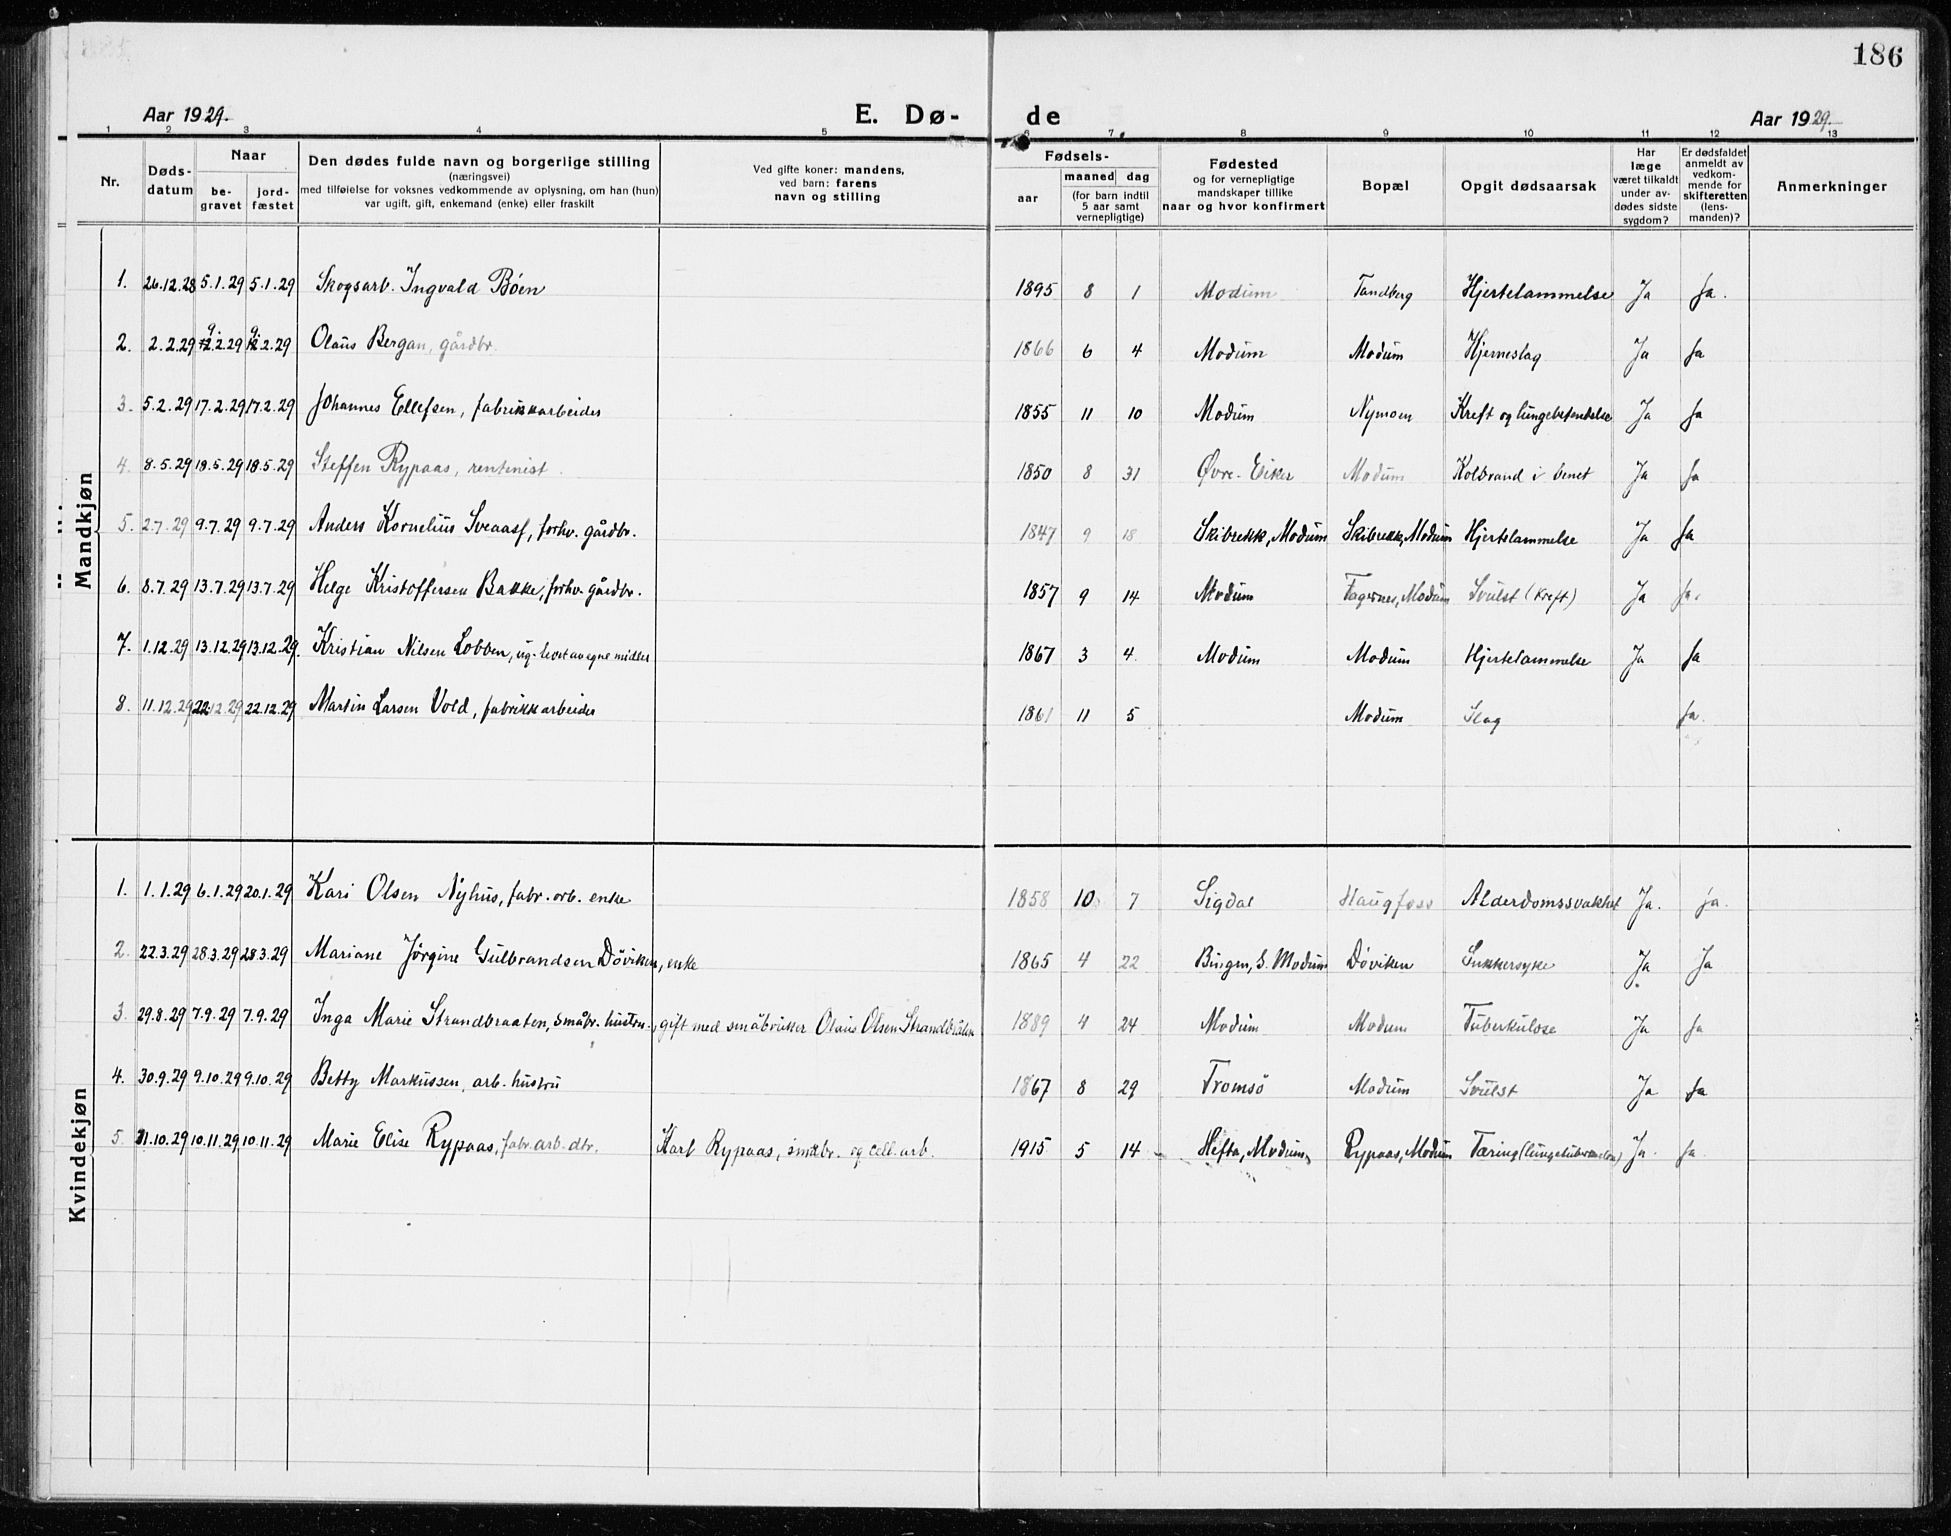 186
Aar 1929.
E. Dø-
de
Aar 1929.
1 2 3 4 5 6 7 8 9 10 11 12 13
Nr.
Døds-
datum
Naar
be-
gravet
jord-
fæstet
Den dødes fulde navn og borgerlige stilling
(næringsvei)
med tilføielse for voksnes vedkommende av oplysning, om han (hun)
var ugift, gift, enkemand (enke) eller fraskilt
Ved gifte koner: mandens,
ved barn: farens
navn og stilling
Fødsels-
aar
maaned dag
(for barn indtil
5 aar samt
vernepligtige)
Fødested
og for vernepligtige
mandskaper tillike
naar og hvor konfirmert
Bopæl
Opgit dødsaarsak
Har
læge
været tilkaldt
under av-
dødes sidste
sygdom?
Er dødsfaldet
anmeldt av
vedkom-
mende for
skifteretten
(lens-
manden)?
Anmerkninger
Mandkjøn
1. 26.12.28 5.1.29 5.1.29 Skogsarb. Ingvald Böen 1895 8 1 Modum Tandberg Hjertelammelse Ja Ja.
2. 2.2.29 9.2.29 9.2.29 Olaus Bergan, gårdbr. 1866 6 4 Modum Modum Hjerneslag Ja Ja
3. 5.2.29 17.2.29 17.2.29 Johannes Ellefsen, fabrikkarbeider 1855 11 10 Modum Nymoen Kreft og lungebetendelse Ja Ja
4. 8.5.29 18.5.29 18.5.29 Steffen Rypaas, rentenist. 1850 8 31 Øvre-Eiker Modum Kolbrand i benet Ja Ja
5. 2.7.29 9.7.29 9.7.29 Anders Kornelius Sveaass, forhv. gårdbr. 1847 9 18 Skibrekk, Modum Skibrekk, Modum Hjertelammelse Ja Ja
6. 8.7.29 13.7.29 13.7.29 Helge Kristoffersen Bakke, forhv. gårdbr. 1857 9 14 Modum Fagernes, Modum Svulst (kreft) Ja Ja.
7. 1.12.29 13.12.29 13.12.29. Kristian Nilsen Lobben, ug. levet av egne midler 1867 3 4 Modum Modum Hjertelammelse Ja Ja
8. 11.12.29 22.12.29 22.12.29 Martin Larsen Vold, fabrikkarbeider 1861 11 5 Modum Slag Ja.
Kvindekjøn
1. 1.1.29 6.1.29 20.1.29 Kari Olsen Nyhus, fabr. arb. enke 1858 10 7 Sigdal Haugfoss Alderdomssvakhet Ja. ja.
2. 22.3.29 28.3.29 28.3.29 Mariane Jørgine Gulbrandsen Döviken, enke 1865 4 22 Bingen, S. Modum Döviken Sukkersyke Ja Ja
3. 29.8.29 7.9.29 7.9.29 Inga Marie Strandbraaten, småbr. hustru., gift med småbruker Olaus Olsen Strandbråten 1889 4 24 Modum Modum Tuberkulose Ja Ja
4. 30.9.29 9.10.29 9.10.29 Betty Markussen, arb. hustru 1867 8 29 Tromsö Modum Svulst Ja Ja
5. 31.10.29 10.11.29 10.11.29 Marie Elise Rypaas, fabr. arb. dtr. Karl Rypaas, småbr. og cell. arb. 1915 5 14 Hefta, Modum Rypaas, Modum Tæring Ja. Ja.